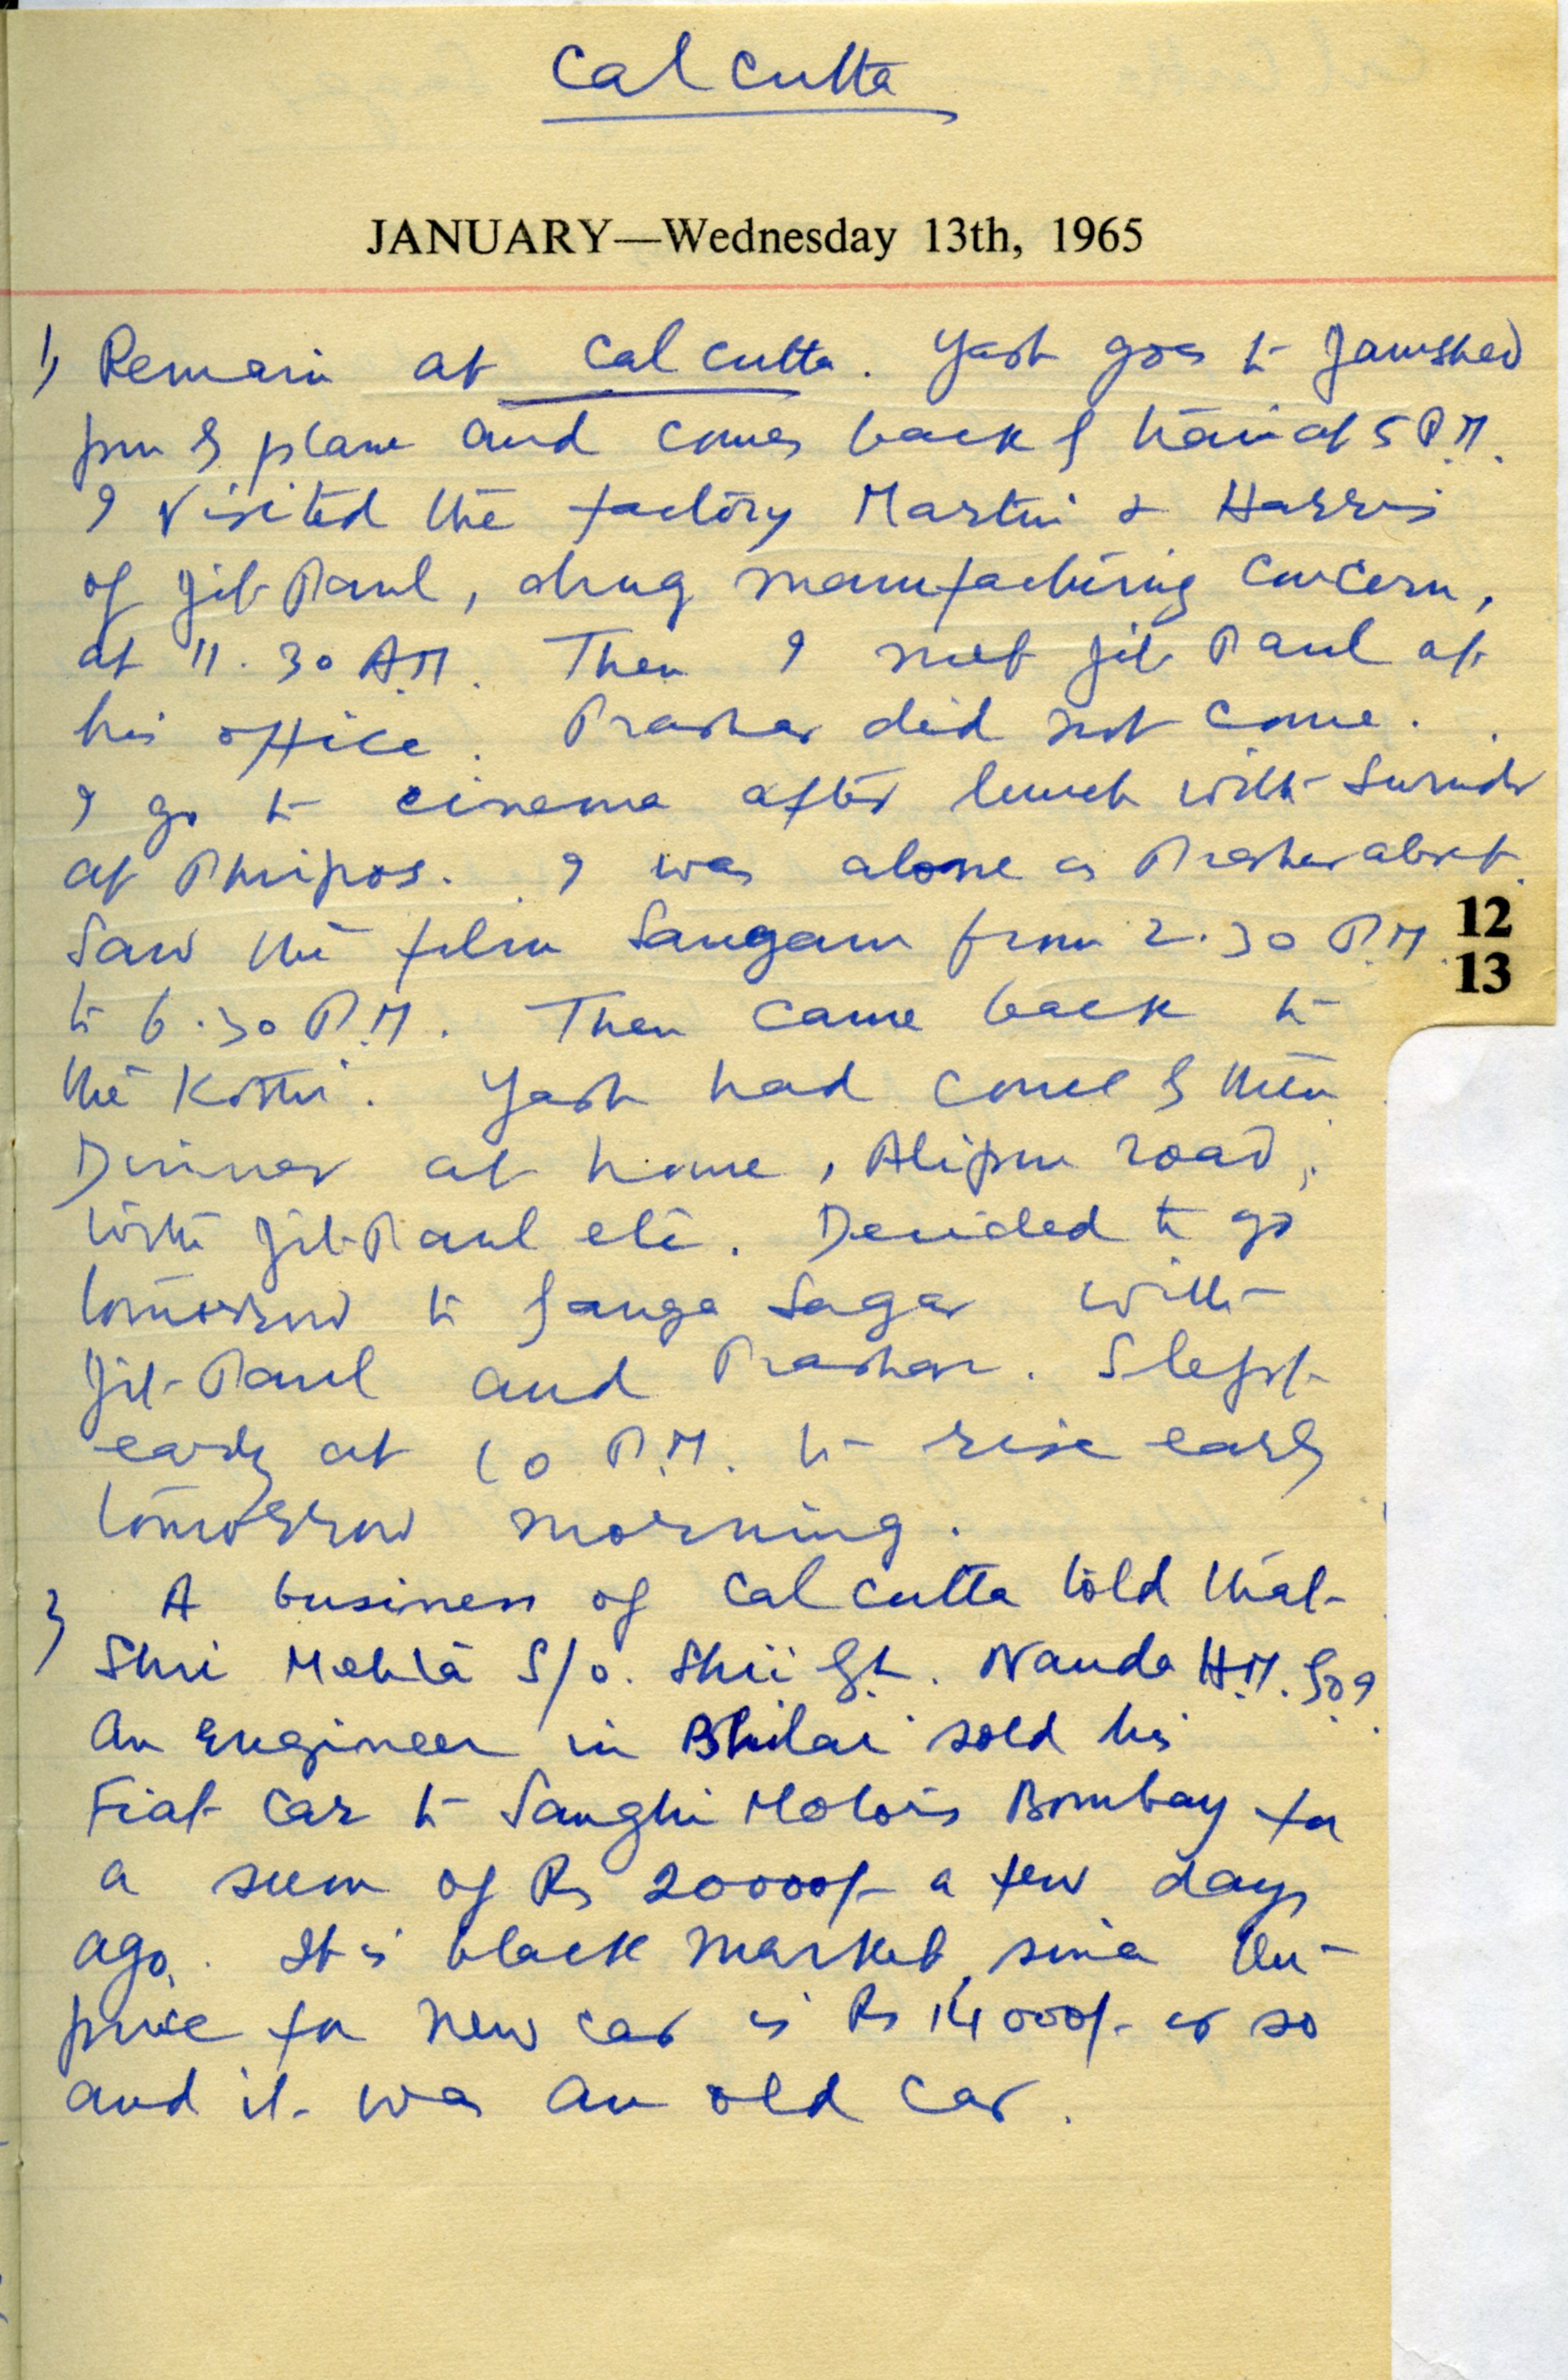 Calcutta
JANUARY—Wednesday 13th, 1965
1) Remain at Calcutta. Yash goes to Jamshed
pur by plane and comes back by train at 5 P.M.
I visited the factory Martin & Harris
of Jit Paul, drug manufacturing concern,
at 11.30 A.M. Then I met Jit Paul at
his office. Prashar did not come.
I go to cinema after lunch with Surindr
at . I was alone as Prashar absent.
Saw the film Sangam from 2.30 P.M.
12
13
to 6.30 P.M. Then came back to
the Kothi. Yash had come by then.
Dinner at home, Alipur road,
with Jit Paul etc. Decided to go
tomorrow to Ganga Sagar with
Jit Paul and Prashar. Slept
early at 10 P.M. to rise early
tomorrow morning.
2) A business of Calcutta told that
Shri Mehta S/o. Shri G.L. Nanda H.M. G.O.I.
an engineer in Bhilai sold his
Fiat car to Sanghi Motors Bombay for
a sum of Rs 20000/- a few days
ago. It is black market, since the
price for new car is Rs 14000/- or so
and it was an old car.